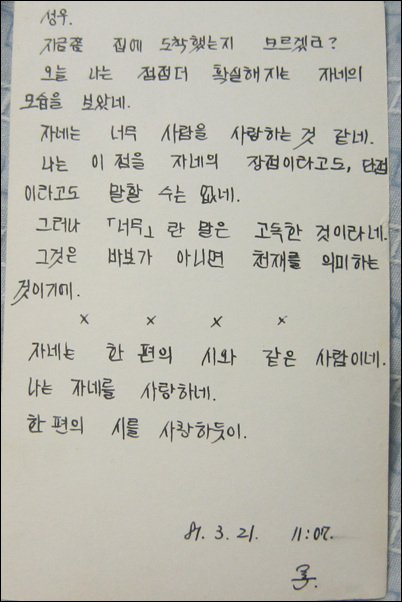 성우.
지금쯤 집에 도착했는지 모르겠군?
오늘 나는 점점더 확실해지는 자네의
모습을 보았네.
자네는 너무 사람을 사랑하는 것 같네.
나는 이 점을 자네의 장점이라고도, 단점
이라고도 말할 수는 없네.
그러나 「너무」란 말은 고독한 것이라네.
그것은 바보가 아니면 천재를 의미하는
것이기에.
× × × ×
자네는 한 편의 시와 같은 사람이네.
나는 자네를 사랑하네.
한 편의 시를 사랑하듯이.
87. 3. 21. 11:07.